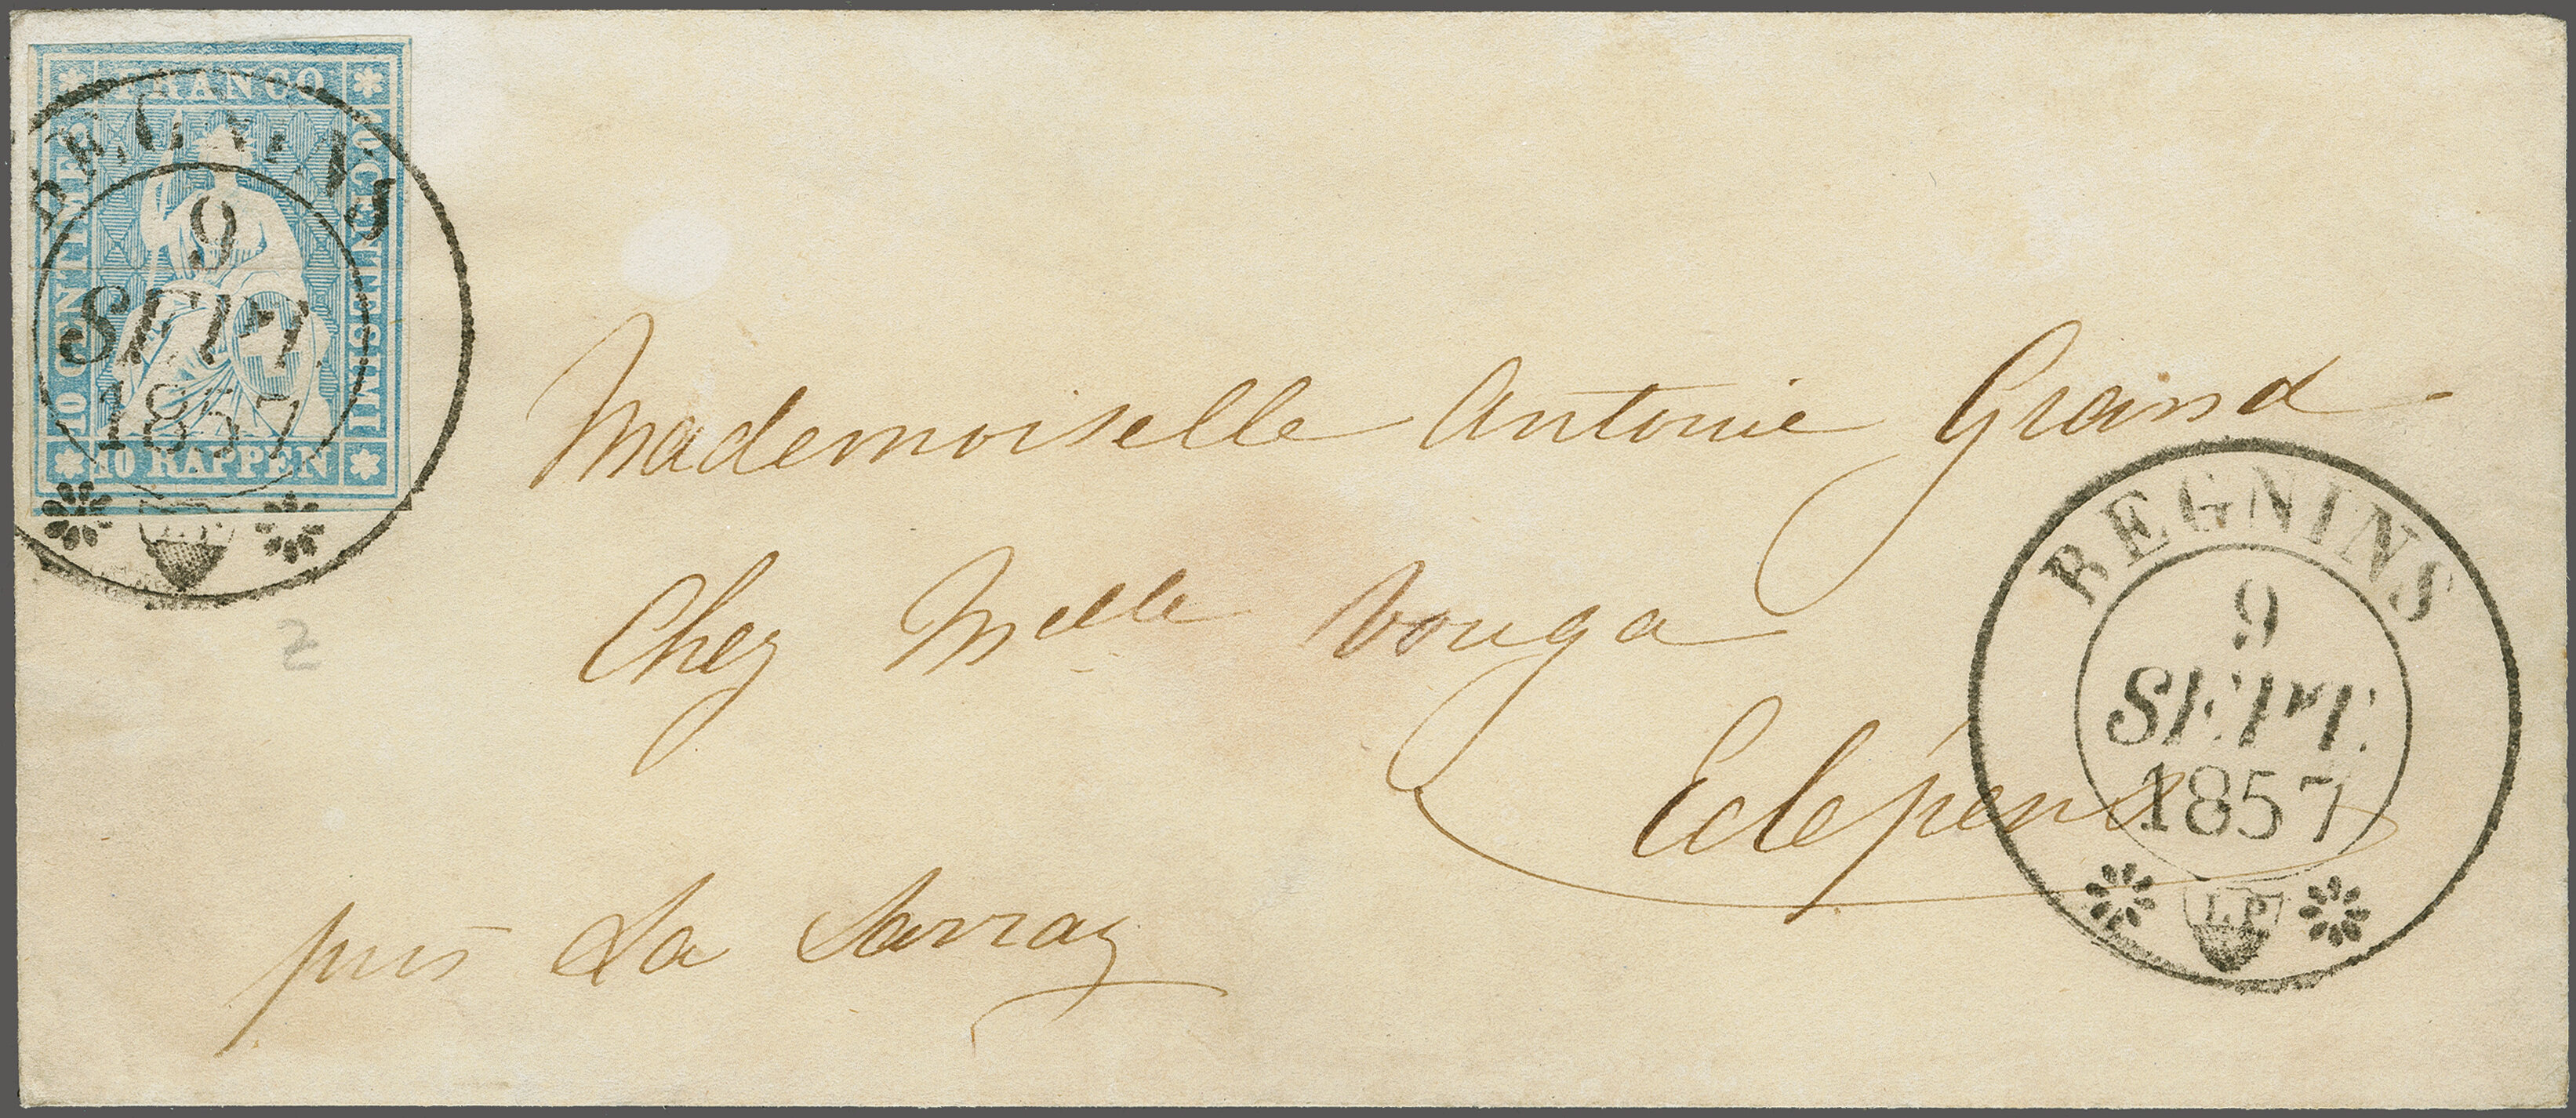 FRANCO
10 CENTIMES
10 CENTESIMI
10 RAPPEN
BEGNINS
9
SEPT.
1857
Mademoiselle Antonie Grand -
Chez Melle Vouga
Eclépens
près La Sarraz
BEGNINS
9
SEPT.
1857
L.P.
2